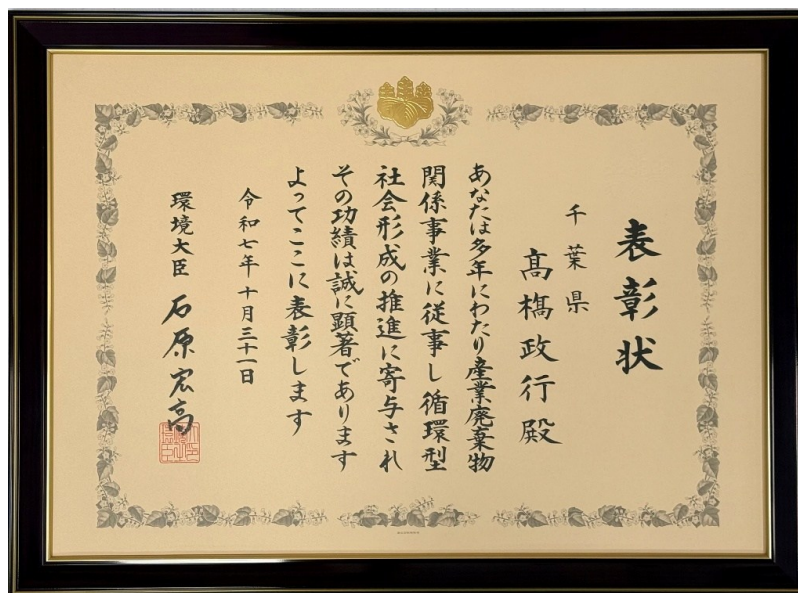 表彰状
千葉県
髙橋政行殿
あなたは多年にわたり産業廃棄物
関係事業に従事し循環型
社会形成の推進に寄与され
その功績は誠に顕著であります
よってここに表彰します
令和七年十月三十一日
環境大臣 石原宏高